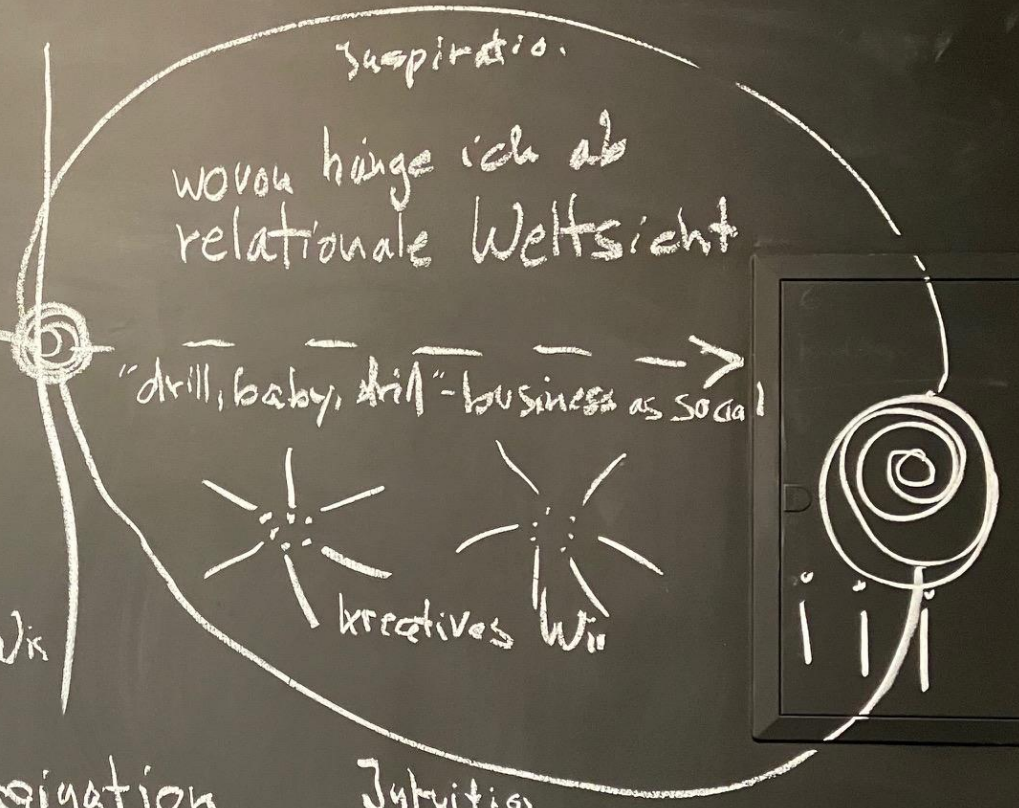 Inspiratio.
wovon hänge ich ab
relationale Weltsicht
"drill, baby, drill"-business as social
kreatives Wir
i i i
Wir
Intuitio